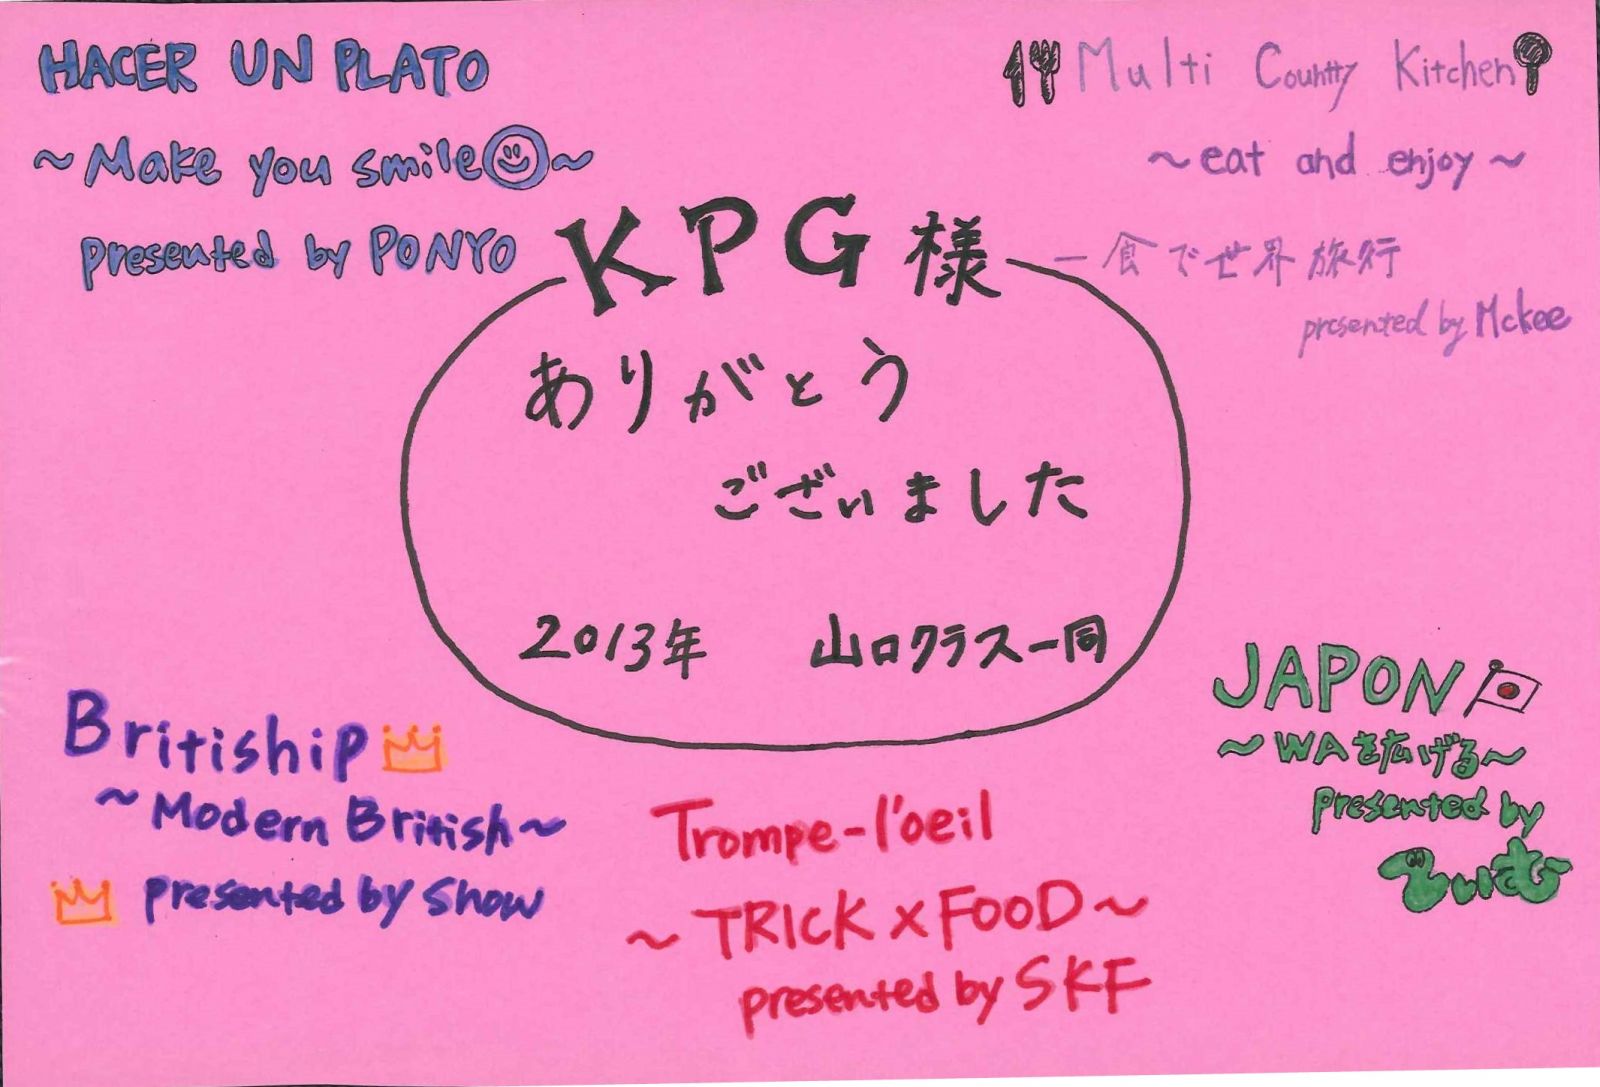 HACER UN PLATO
~Make you smile~
presented by PONYO
Multi Country Kitchen
~eat and enjoy~
一食で世界旅行
presented by Mckee
KPG様
ありがとう
ございました
2013年 山口クラス一同
Britiship
~Modern British~
presented by Show
Trompe-l'oeil
~TRICK×FOOD~
presented by SKF
JAPON
~WAを広げる~
presented by